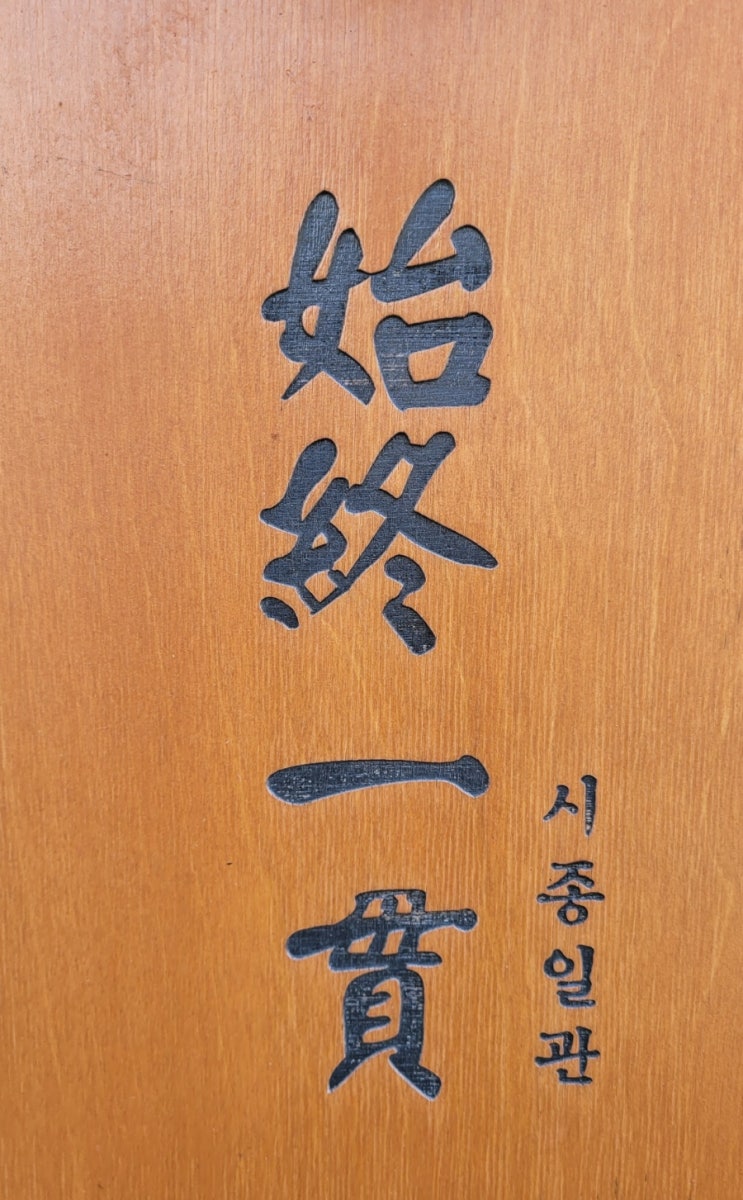 始終一貫
시종일관